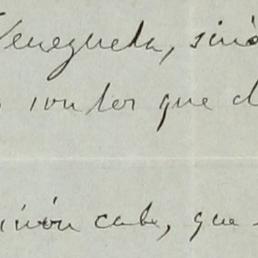 Venezuela, sinó
son los que d
inión cabe, que